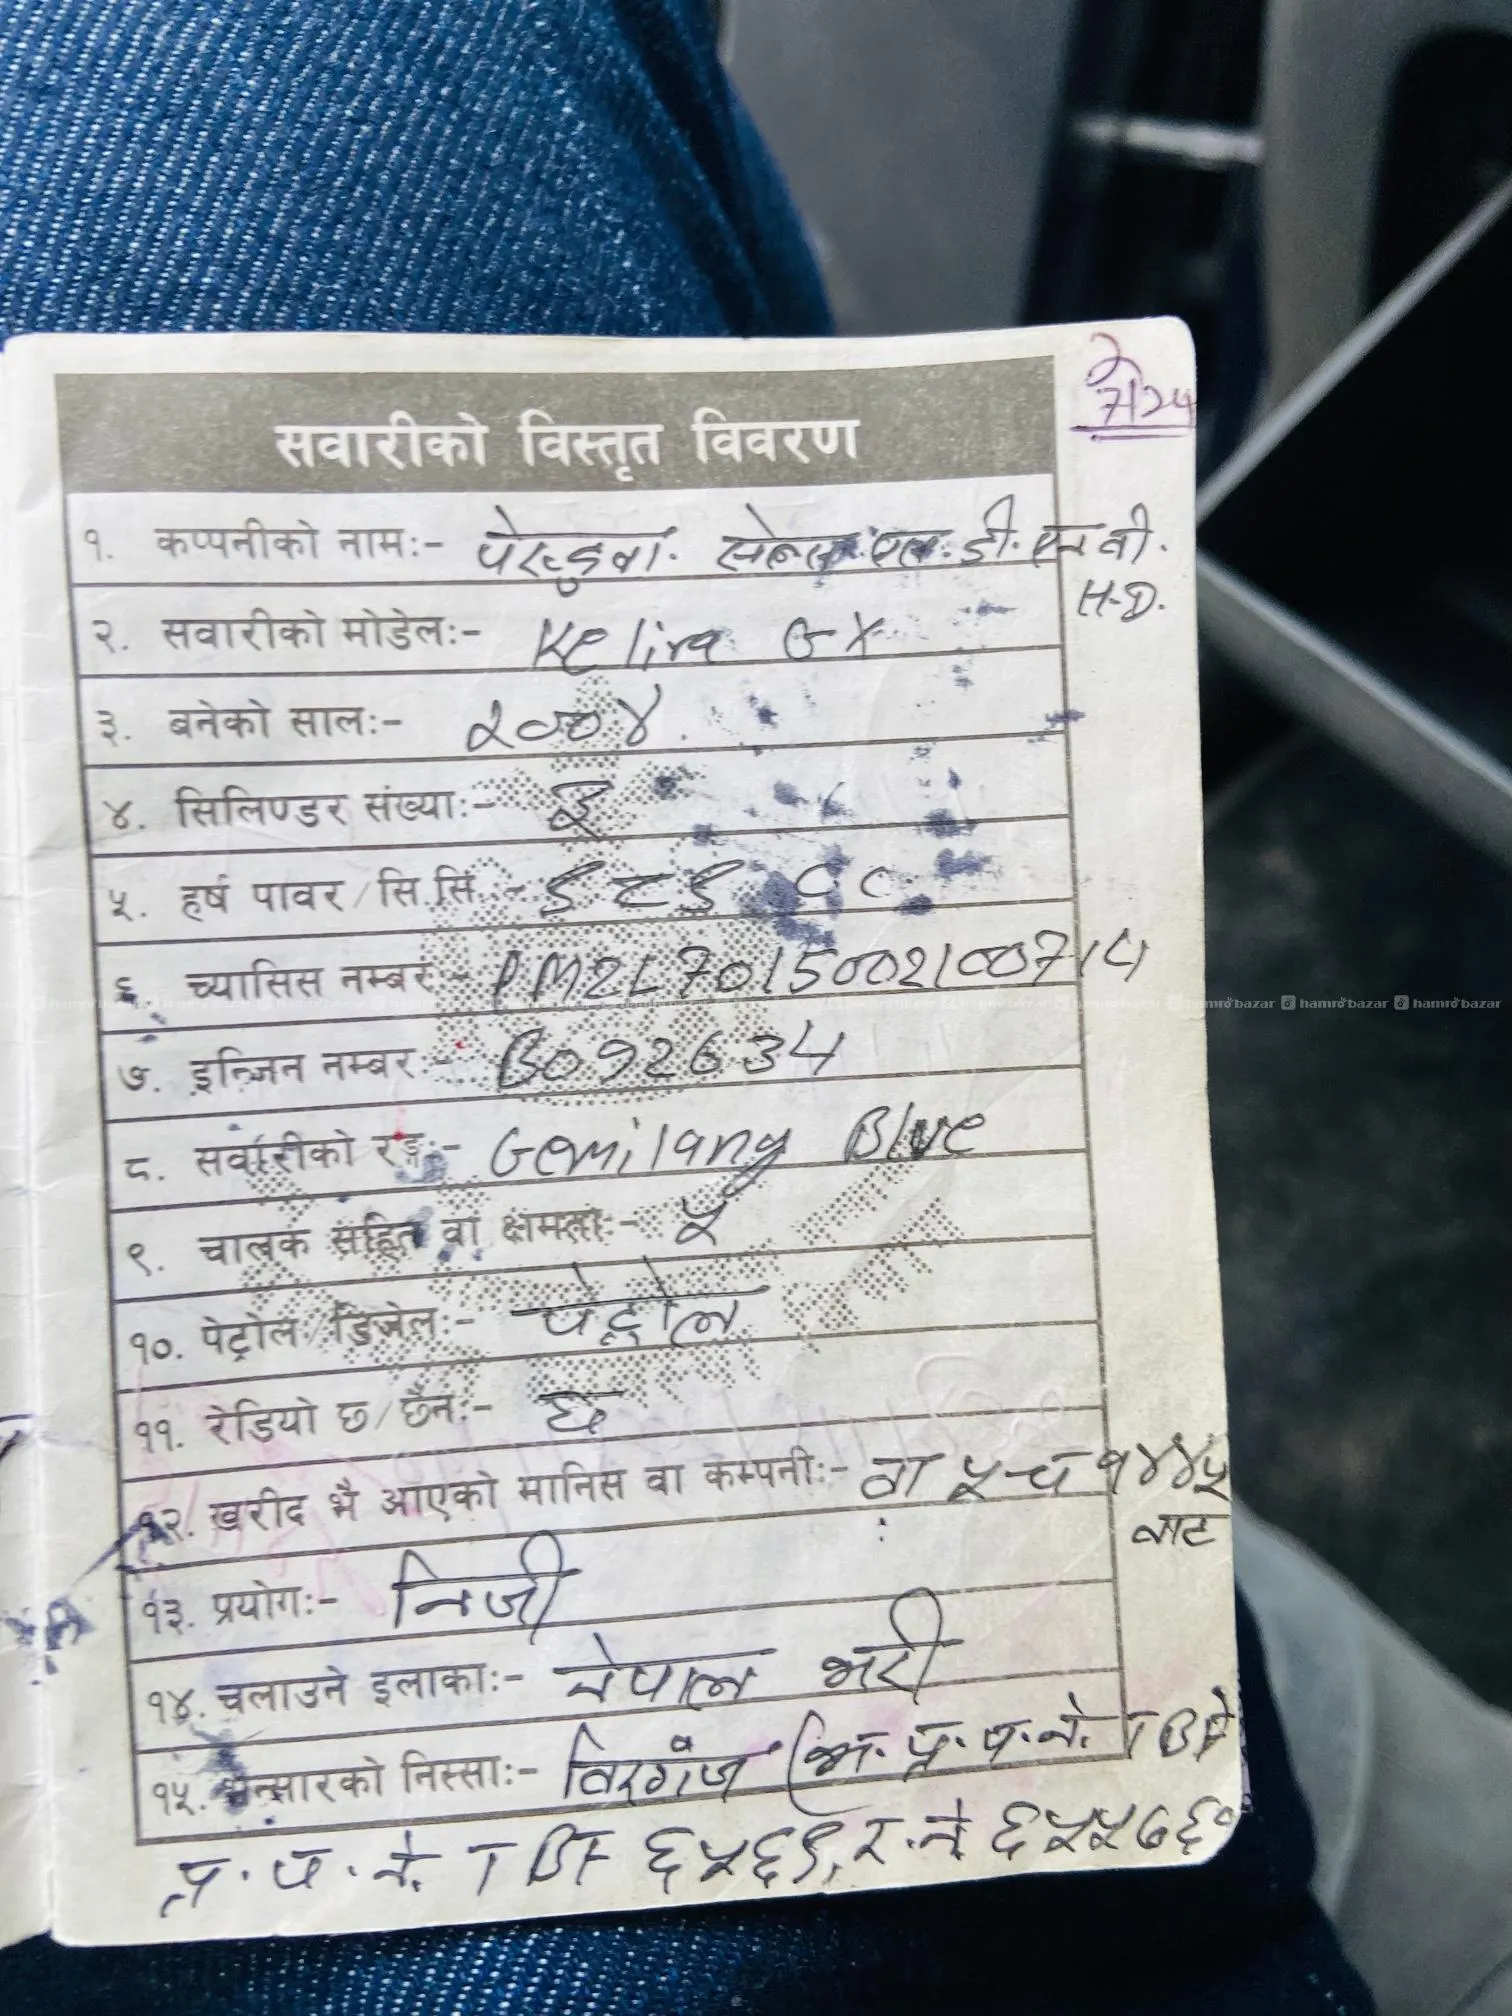 सवारीको विस्तृत विवरण
१. कम्पनीको नाम:- पेरुडुवा. सेल्स. एस. डी. एन वी.
H.D.
२. सवारीको मोडेल:- Kelira GX
३. बनेको साल:- २००४
४. सिलिण्डर संख्या:- ३
५. हर्ष पावर/सि.सि.:- ९८९ CC.
६. च्यासिस नम्बर:- PM2L7015002100714
७. इन्जिन नम्बर:- B092634
८. सवारीको रङ्ग:- Gemilang Blue
९. चालक सहित वा क्षमता:- ५
१०. पेट्रोल/डिजेल:- पेट्रोल
११. रेडियो छ/छैन:- छ
१२. खरीद भै आएको मानिस वा कम्पनी:- बा ५ च १४४५
बाट
१३. प्रयोग:- निजी
१४. चलाउने इलाका:- नेपाल भरी
१५. भन्सारको निस्सा:- विरगंज (भ. प्र. प. नं. TBF
प्र. प. नं. TBF ६५६९, र. नं ६५५७६१
hamrobazar hamrobazar hamrobazar